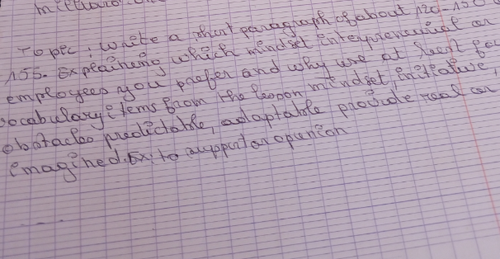 Topic: write a short paragraph of about 120-150
155. Explaining which mindset interpreneurial or
employees you prefer and why use at least
vocabulary items from the lesson mindset, initiative
obstacles predictable, adaptable provide real or
imagined. Ex to support or opinion